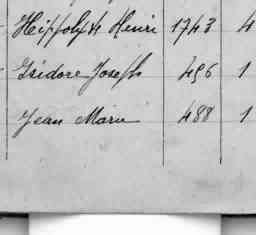 Hippolyte Henri 1743 4
Isidore Joseph 496 1
Jean Marie 488 1